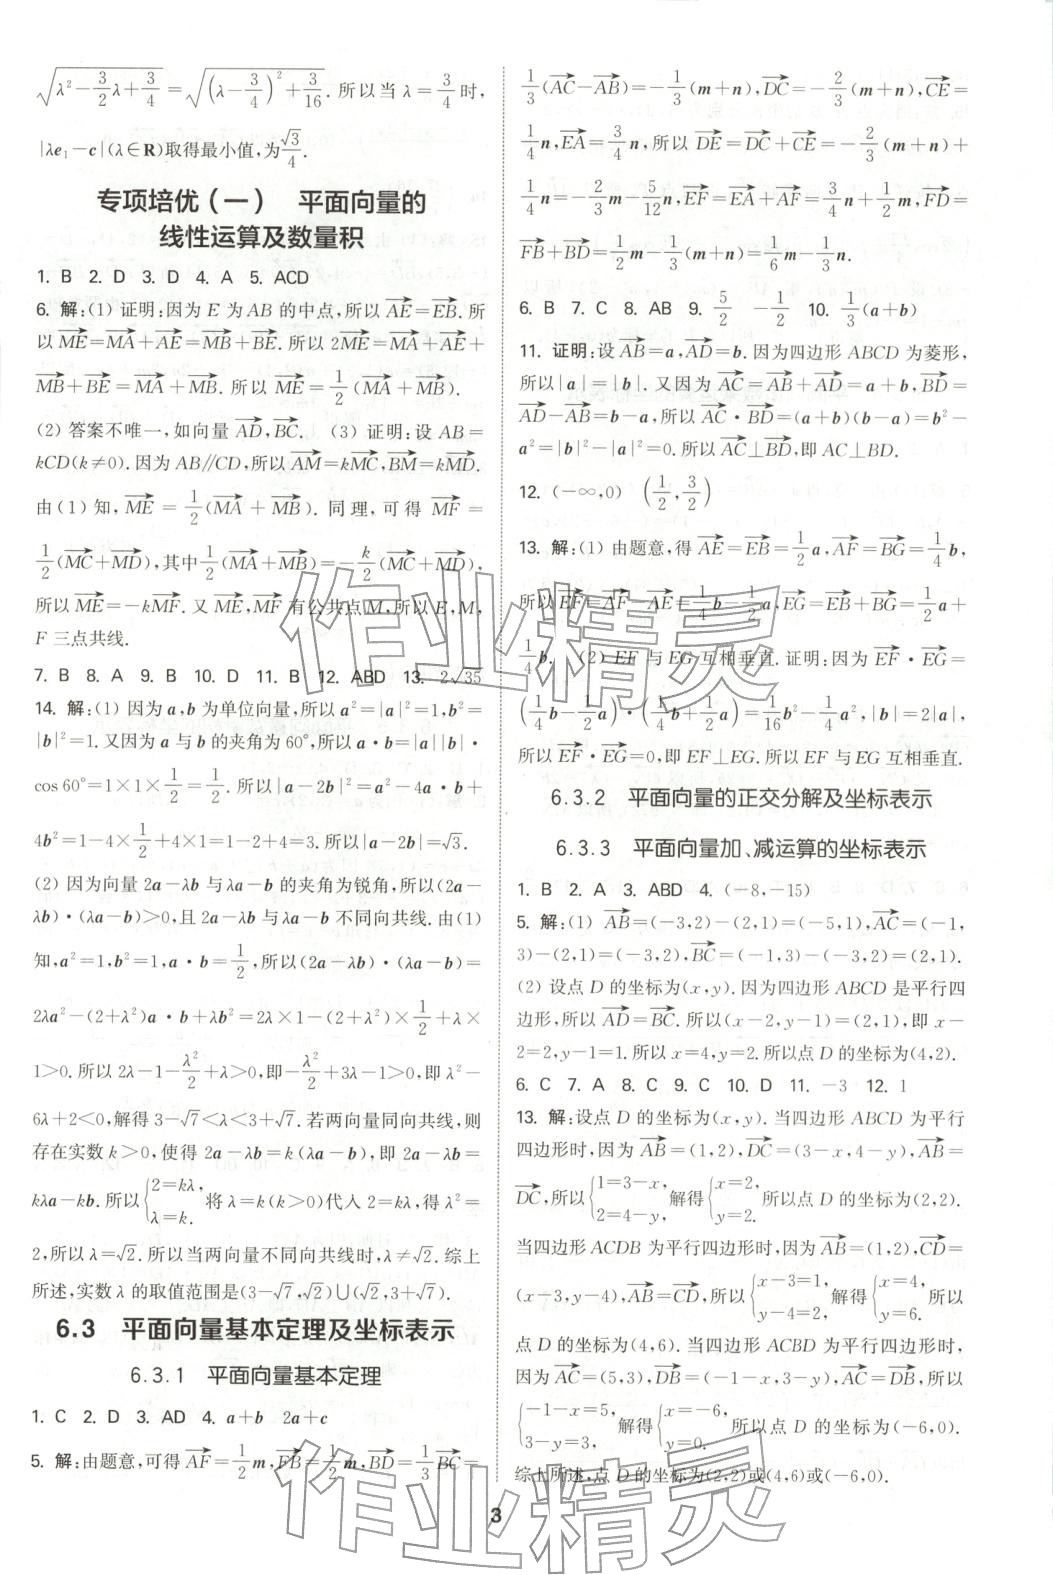 √(λ²－3/2λ＋3/4)＝√((λ－3/4)²＋3/16).所以当λ＝3/4时,
|λe₁－c|(λ∈R)取得最小值,为√3/4.
专项培优(一) 平面向量的
线性运算及数量积
1. B 2. D 3. D 4. A 5. ACD
6. 解:(1) 证明:因为 E 为 AB 的中点,所以 AE→＝EB→.所
以 ME→＝MA→＋AE→＝MB→＋BE→.所以 2ME→＝MA→＋AE→＋
MB→＋BE→＝MA→＋MB→.所以 ME→＝1/2(MA→＋MB→).
(2) 答案不唯一,如向量 AD→,BC→. (3) 证明:设 AB＝
kCD(k≠0).因为 AB∥CD,所以 AM→＝kMC→,BM→＝kMD→.
由(1)知,ME→＝1/2(MA→＋MB→).同理,可得 MF→＝
1/2(MC→＋MD→),其中1/2(MA→＋MB→)＝－k/2(MC→＋MD→),
所以ME→＝－kMF→.又ME→,MF→有公共点M,所以E,M,
F 三点共线.
7. B 8. A 9. B 10. D 11. B 12. ABD 13. 2√35
14. 解:(1) 因为 a,b 为单位向量,所以 a²＝|a|²＝1,b²＝
|b|²＝1.又因为 a 与 b 的夹角为 60°,所以 a·b＝|a||b|·
cos 60°＝1×1×1/2＝1/2.所以|a－2b|²＝a²－4a·b＋
4b²＝1－4×1/2＋4×1＝1－2＋4＝3.所以|a－2b|＝√3.
(2) 因为向量 2a－λb 与 λa－b 的夹角为锐角,所以(2a－
λb)·(λa－b)＞0,且 2a－λb 与 λa－b 不同向共线.由(1)
知,a²＝1,b²＝1,a·b＝1/2,所以(2a－λb)·(λa－b)＝
2λa²－(2＋λ²)a·b＋λb²＝2λ×1－(2＋λ²)×1/2＋λ×
1＞0.所以 2λ－1－λ²/2＋λ＞0,即－λ²/2＋3λ－1＞0,即 λ²－
6λ＋2＜0,解得 3－√7＜λ＜3＋√7.若两向量同向共线,则
存在实数 k＞0,使得 2a－λb＝k(λa－b),即 2a－λb＝
kλa－kb.所以{2＝kλ, λ＝k. 将 λ＝k(k＞0)代入 2＝kλ,得 λ²＝
2,所以 λ＝√2.所以当两向量不同向共线时,λ≠√2.综上
所述,实数 λ 的取值范围是(3－√7,√2)∪(√2,3＋√7).
6.3 平面向量基本定理及坐标表示
6.3.1 平面向量基本定理
1. C 2. D 3. AD 4. a＋b 2a＋c
5. 解:由题意,可得 AF→＝1/2m,FB→＝1/2m,BD→＝1/3BC→＝
1/3(AC→－AB→)＝－1/3(m＋n),DC→＝－2/3(m＋n),CE→＝
1/4n,EA→＝3/4n.所以 DE→＝DC→＋CE→＝－2/3(m＋n)＋
1/4n＝－2/3m－5/12n,EF→＝EA→＋AF→＝3/4n＋1/2m,FD→＝
FB→＋BD→＝1/2m－1/3(m＋n)＝1/6m－1/3n.
6. B 7. C 8. AB 9. 5/2 －1/2 10. 1/3(a＋b)
11. 证明:设 AB→＝a,AD→＝b.因为四边形 ABCD 为菱形,
所以|a|＝|b|.又因为 AC→＝AB→＋AD→＝a＋b,BD→＝
AD→－AB→＝b－a,所以 AC→·BD→＝(a＋b)(b－a)＝b²－
a²＝|b|²－|a|²＝0.所以AC→⊥BD→,即 AC⊥BD.
12. (－∞,0) (1/2,3/2)
13. 解:(1) 由题意,得 AE→＝EB→＝1/2a,AF→＝BG→＝1/4b,
所以 EF→＝AF→－AE→＝1/4b－1/2a,EG→＝EB→＋BG→＝1/2a＋
1/4b. (2) EF 与 EG 互相垂直.证明:因为 EF→·EG→＝
(1/4b－1/2a)·(1/4b＋1/2a)＝1/16b²－1/4a²,|b|＝2|a|,
所以 EF→·EG→＝0,即 EF⊥EG.所以 EF 与 EG 互相垂直.
6.3.2 平面向量的正交分解及坐标表示
6.3.3 平面向量加、减运算的坐标表示
1. B 2. A 3. ABD 4. (－8,－15)
5. 解:(1) AB→＝(－3,2)－(2,1)＝(－5,1),AC→＝(－1,
3)－(2,1)＝(－3,2),BC→＝(－1,3)－(－3,2)＝(2,1).
(2) 设点 D 的坐标为(x,y).因为四边形 ABCD 是平行四
边形,所以 AD→＝BC→.所以(x－2,y－1)＝(2,1),即 x－
2＝2,y－1＝1.所以 x＝4,y＝2.所以点 D 的坐标为(4,2).
6. C 7. A 8. C 9. C 10. D 11. －3 12. 1
13. 解:设点 D 的坐标为(x,y).当四边形 ABCD 为平行
四边形时,因为 AB→＝(1,2),DC→＝(3－x,4－y),AB→＝
DC→,所以{1＝3－x, 2＝4－y, 解得{x＝2, y＝2. 所以点 D 的坐标为(2,2).
当四边形 ACDB 为平行四边形时,因为AB→＝(1,2),CD→＝
(x－3,y－4),AB→＝CD→,所以{x－3＝1, y－4＝2, 解得{x＝4, y＝6. 所以
点 D 的坐标为(4,6).当四边形 ACBD 为平行四边形时,
因为 AC→＝(5,3),DB→＝(－1－x,3－y),AC→＝DB→,所以
{－1－x＝5, 3－y＝3, 解得{x＝－6, y＝0. 所以点 D 的坐标为(－6,0).
综上所述,点 D 的坐标为(2,2)或(4,6)或(－6,0).
3
作业精灵
作业精灵